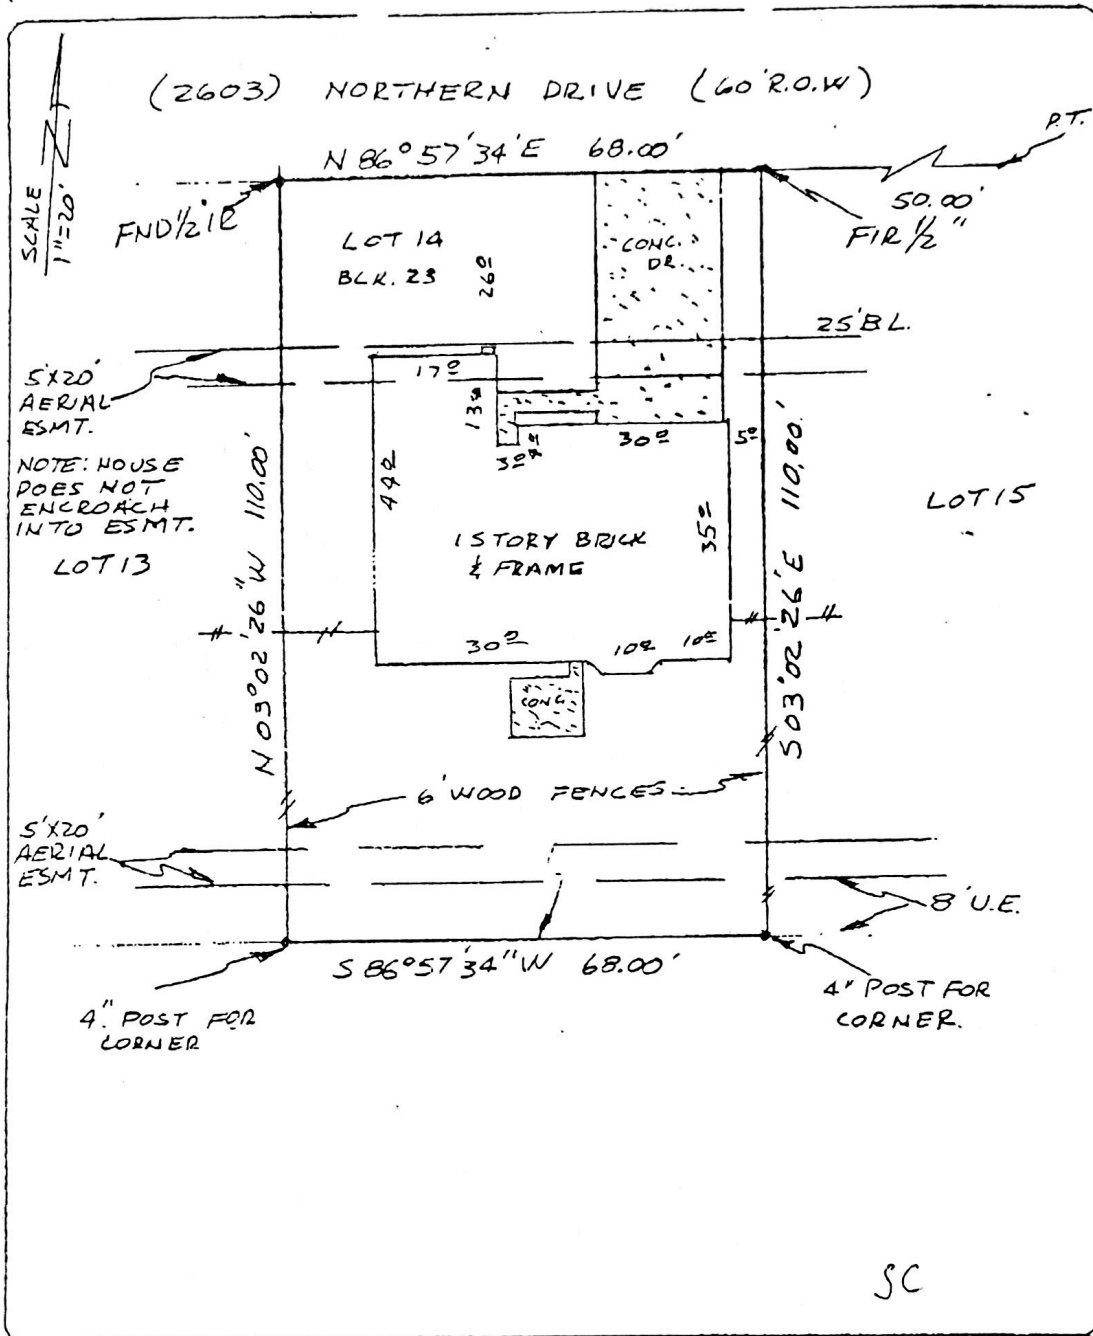 (2603) NORTHERN DRIVE (60'R.O.W)
P.T.
N 86°57'34'E 68.00'
SCALE
1"=20'
N
FND 1/2" IR
50.00'
FIR 1/2"
LOT 14
BLK. 23
26º
CONC.
DR.
25'B.L.
5'X20'
AERIAL
ESMT.
17º
13º
30º
5º
3º
NOTE: HOUSE
DOES NOT
ENCROACH
INTO ESMT.
LOT 13
N 03°02'26"W 110.00'
44º
1 STORY BRICK
& FRAME
35º
S 03°02'26'E 110.00'
LOT 15
30º
10º
10º
CONC.
6' WOOD FENCES
5'X20'
AERIAL
ESMT.
8' U.E.
S 86°57'34"W 68.00'
4". POST FOR
CORNER
4" POST FOR
CORNER.
SC